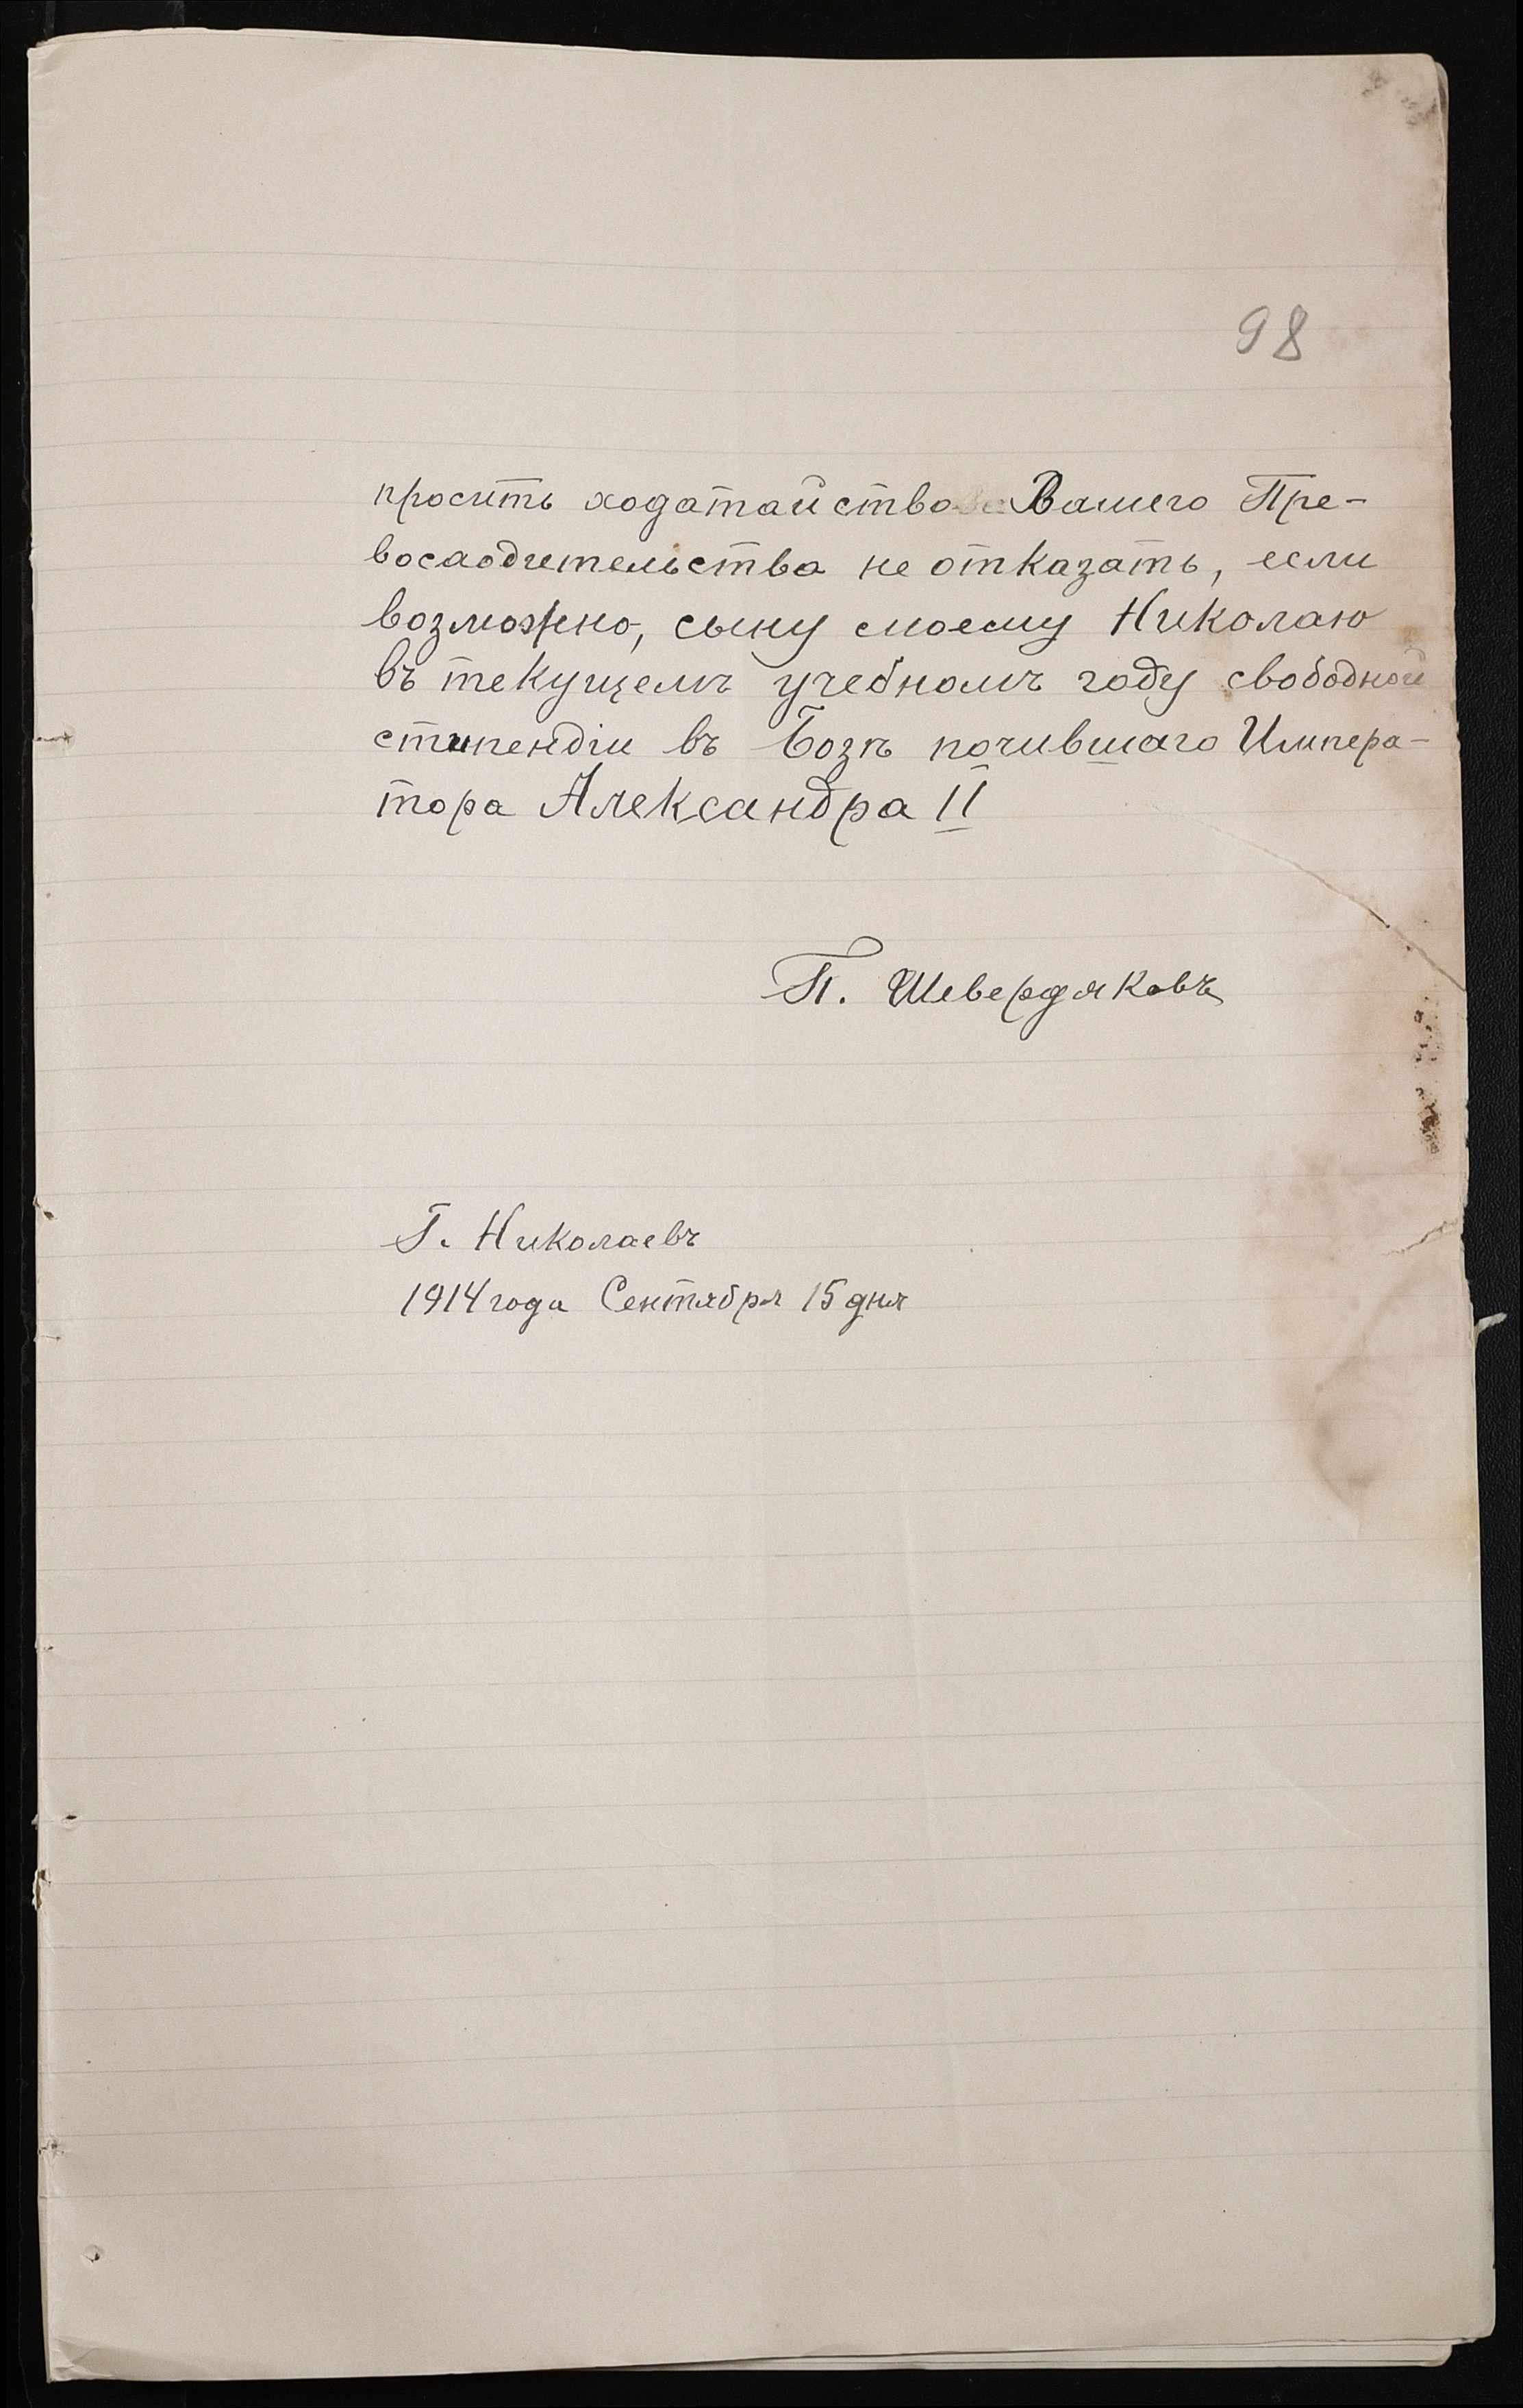 98
просить ходатайство Вашего Пре-
восходительства не отказать, если
возможно, сыну моему Николаю
въ текущемъ учебномъ году свободной
стипендіи въ Бозѣ почившаго Импера-
тора Александра II
П. Шевердяковъ
Г. Николаевъ
1914 года Сентября 15 дня